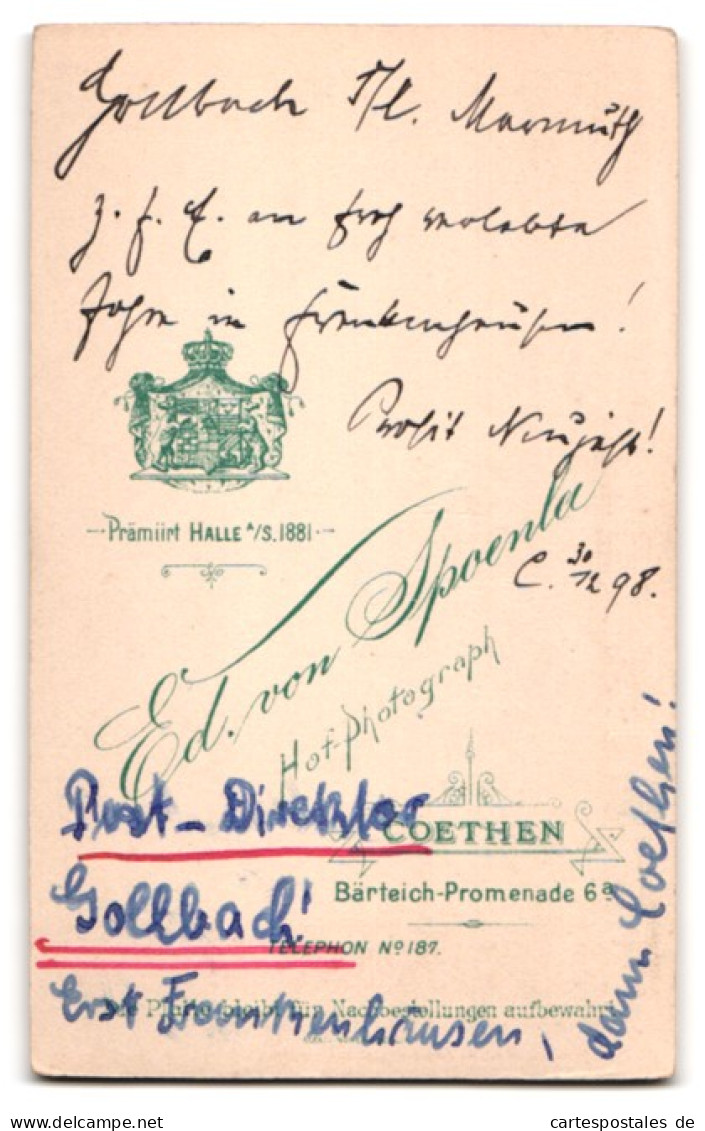 Gollbach s/l. Marmuth
z. f. E. an froh verlebte
Jahre in Frankenhausen!
Prosit Neujahr!
Prämiirt HALLE A/S. 1881
C. 30/12 98.
Ed. von Spoenla
Hof-Photograph
Post-Direktor
COETHEN
Bärteich-Promenade 6a
Gollbach!
TELEPHON No 187.
Die Platte bleibt für Nachbestellungen aufbewahrt
Erst Frankenhausen,
dann Coethen!
www.cartespostales.de